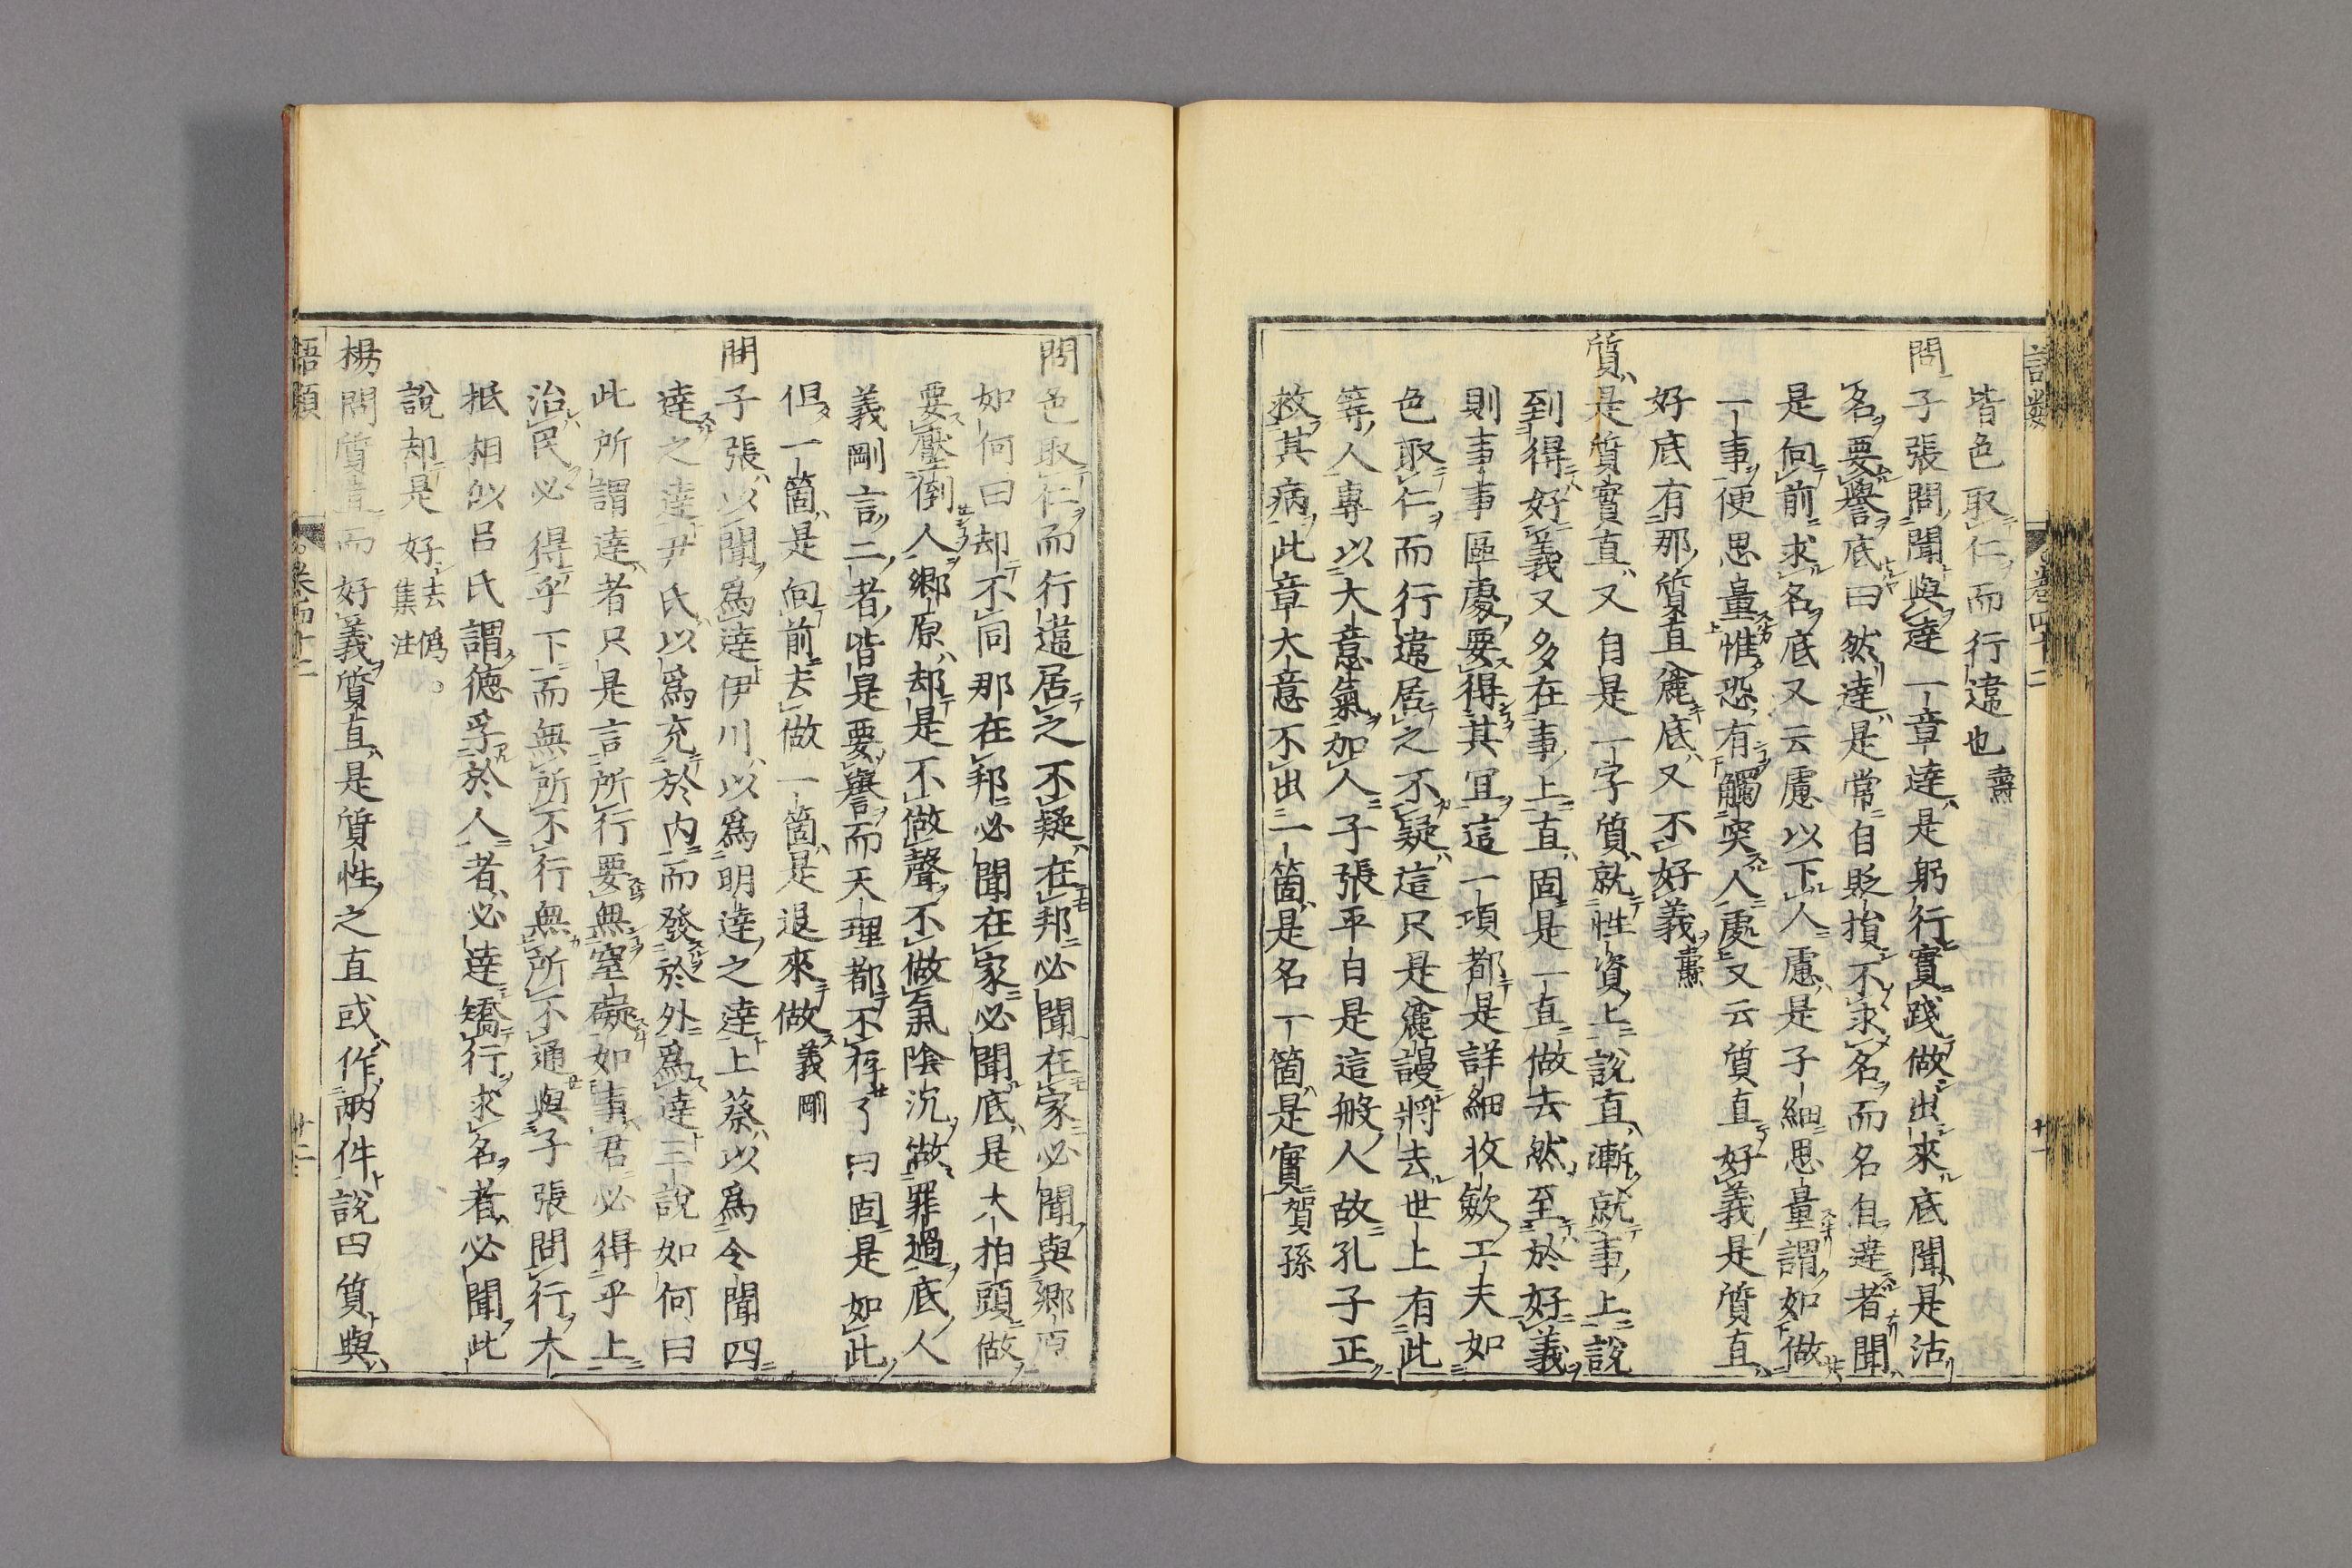 語類 卷四十二 廿一
皆色取仁而行違也 燾
問子張問聞與達一章達是躬行實踐做出來底聞是沽
名要譽底曰然達是常自貶損不求名而名自達者聞
是向前求名底又云慮以下人慮是子細思量謂如做
一事便思量惟恐有觸突人處又云質直好義是質直
好底有那質直麄底又不好義 燾
質是質實直又自是一字質就性資上說直漸就事上說
到得好義又多在事上直固是一直做去然至於好義
則事事區處要得其宜這一項都是詳細收斂工夫如
色取仁而行違居之不疑這只是麄謾將去世上有此
等人專以大意氣加人子張平日是這般人故孔子正
救其病此章大意不出一箇是名一箇是實 賀孫
問色取仁而行違居之不疑在邦必聞在家必聞與鄉原
如何曰却不同那在邦必聞在家必聞底是大拍頭做
要壓倒人鄉原却是不做聲不做氣陰沉做罪過底人
義剛言二者皆是要譽而天理都不存了曰固是如此
但一箇是向前去做一箇是退來做 義剛
問子張以聞為達伊川以為明達之達上蔡以為令聞四
達之達尹氏以為充於內而發於外為達三說如何曰
此所謂達者只是言所行要無窒礙如事君必得乎上
治民必得乎下而無所不行無所不通與子張問行大
抵相似呂氏謂德孚於人者必達矯行求名者必聞此
說却是好 去偽 集注
楊問質直而好義質直是質性之直或作兩件說曰質與
語類 卷四十二 廿二